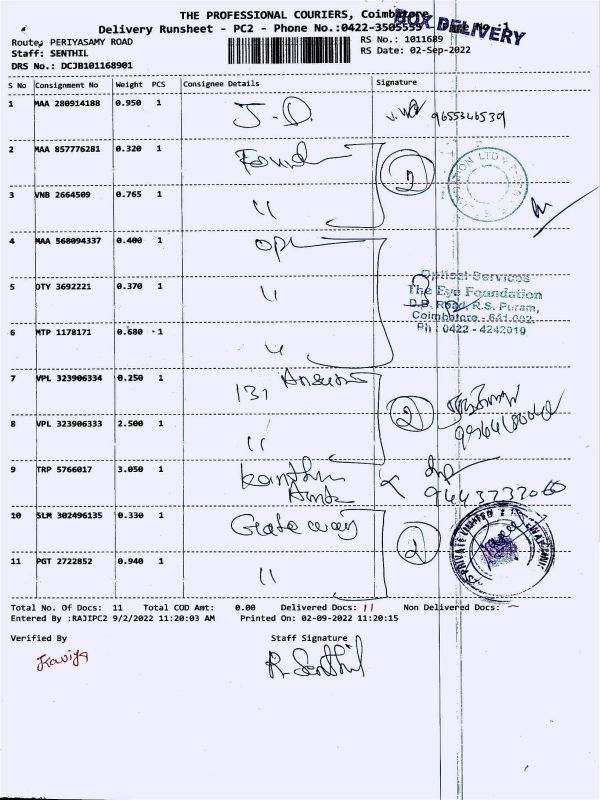 THE PROFESSIONAL COURIERS, Coimbatore
Delivery Runsheet - PC2 - Phone No.:0422-3505555 Page No.:1
BOX DELIVERY
Route: PERIYASAMY ROAD
RS No.: 1011689
Staff: SENTHIL
RS Date: 02-Sep-2022
DRS No.: DCJB101168901
S No Consignment No Weight PCS Consignee Details Signature
1 MAA 280914188 0.950 1 J.D. 9655346539
2 MAA 857776281 0.320 1 Found 2
3 VNB 2664509 0.765 1 "
4 MAA 568094337 0.400 1 opt
5 OTY 3692221 0.370 1 "
Optical Services
The Eye Foundation
D.B. Road, R.S. Puram,
Coimbatore - 641 002.
Ph : 0422 - 4242019
6 MTP 1178171 0.680 1 "
7 VPL 323906334 0.250 1 131
8 VPL 323906333 2.500 1 " 2
9 TRP 5766017 3.050 1
10 SLM 302496135 0.330 1 Gate way 2
PRIVATE LIMITED
11 PGT 2722852 0.940 1 "
Total No. Of Docs: 11 Total COD Amt: 0.00 Delivered Docs: 11 Non Delivered Docs: —
Entered By :RAJIPC2 9/2/2022 11:20:03 AM Printed On: 02-09-2022 11:20:15
Verified By Staff Signature
Kaviya R. Senthil